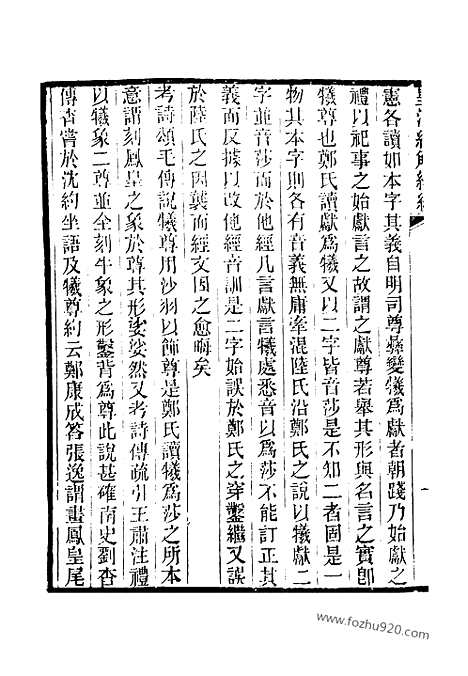 皇清經解續編
憲各讀如本字其義自明司尊彝變犧爲獻者朝踐乃始獻之
禮以祀事之始獻言之故謂之獻尊若舉其形與名言之實卽
犧尊也鄭氏讀獻爲犧又以二字皆音莎是不知二者固是一
物其本字則各有音義無庸牽混陸氏沿鄭氏之說以犧獻二
字並音莎而於他經凡言獻言犧處悉音以爲莎不能訂正其
義而反據以改他經音訓是二字始誤於鄭氏之穿鑿繼又誤
於陸氏之因襲而經文因之愈晦矣
考詩頌毛傳說犧尊用沙羽以飾尊是鄭氏讀犧爲莎之所本
意謂刻鳳皇之象於尊其形娑娑然又考詩傳疏引王肅注禮
以犧象二尊並全刻牛象之形鑿背爲尊此說甚確南史劉杳
傳杳嘗於沈約坐語及犧尊約云鄭康成答張逸謂畫鳳皇尾
一
www.fozhu920.com